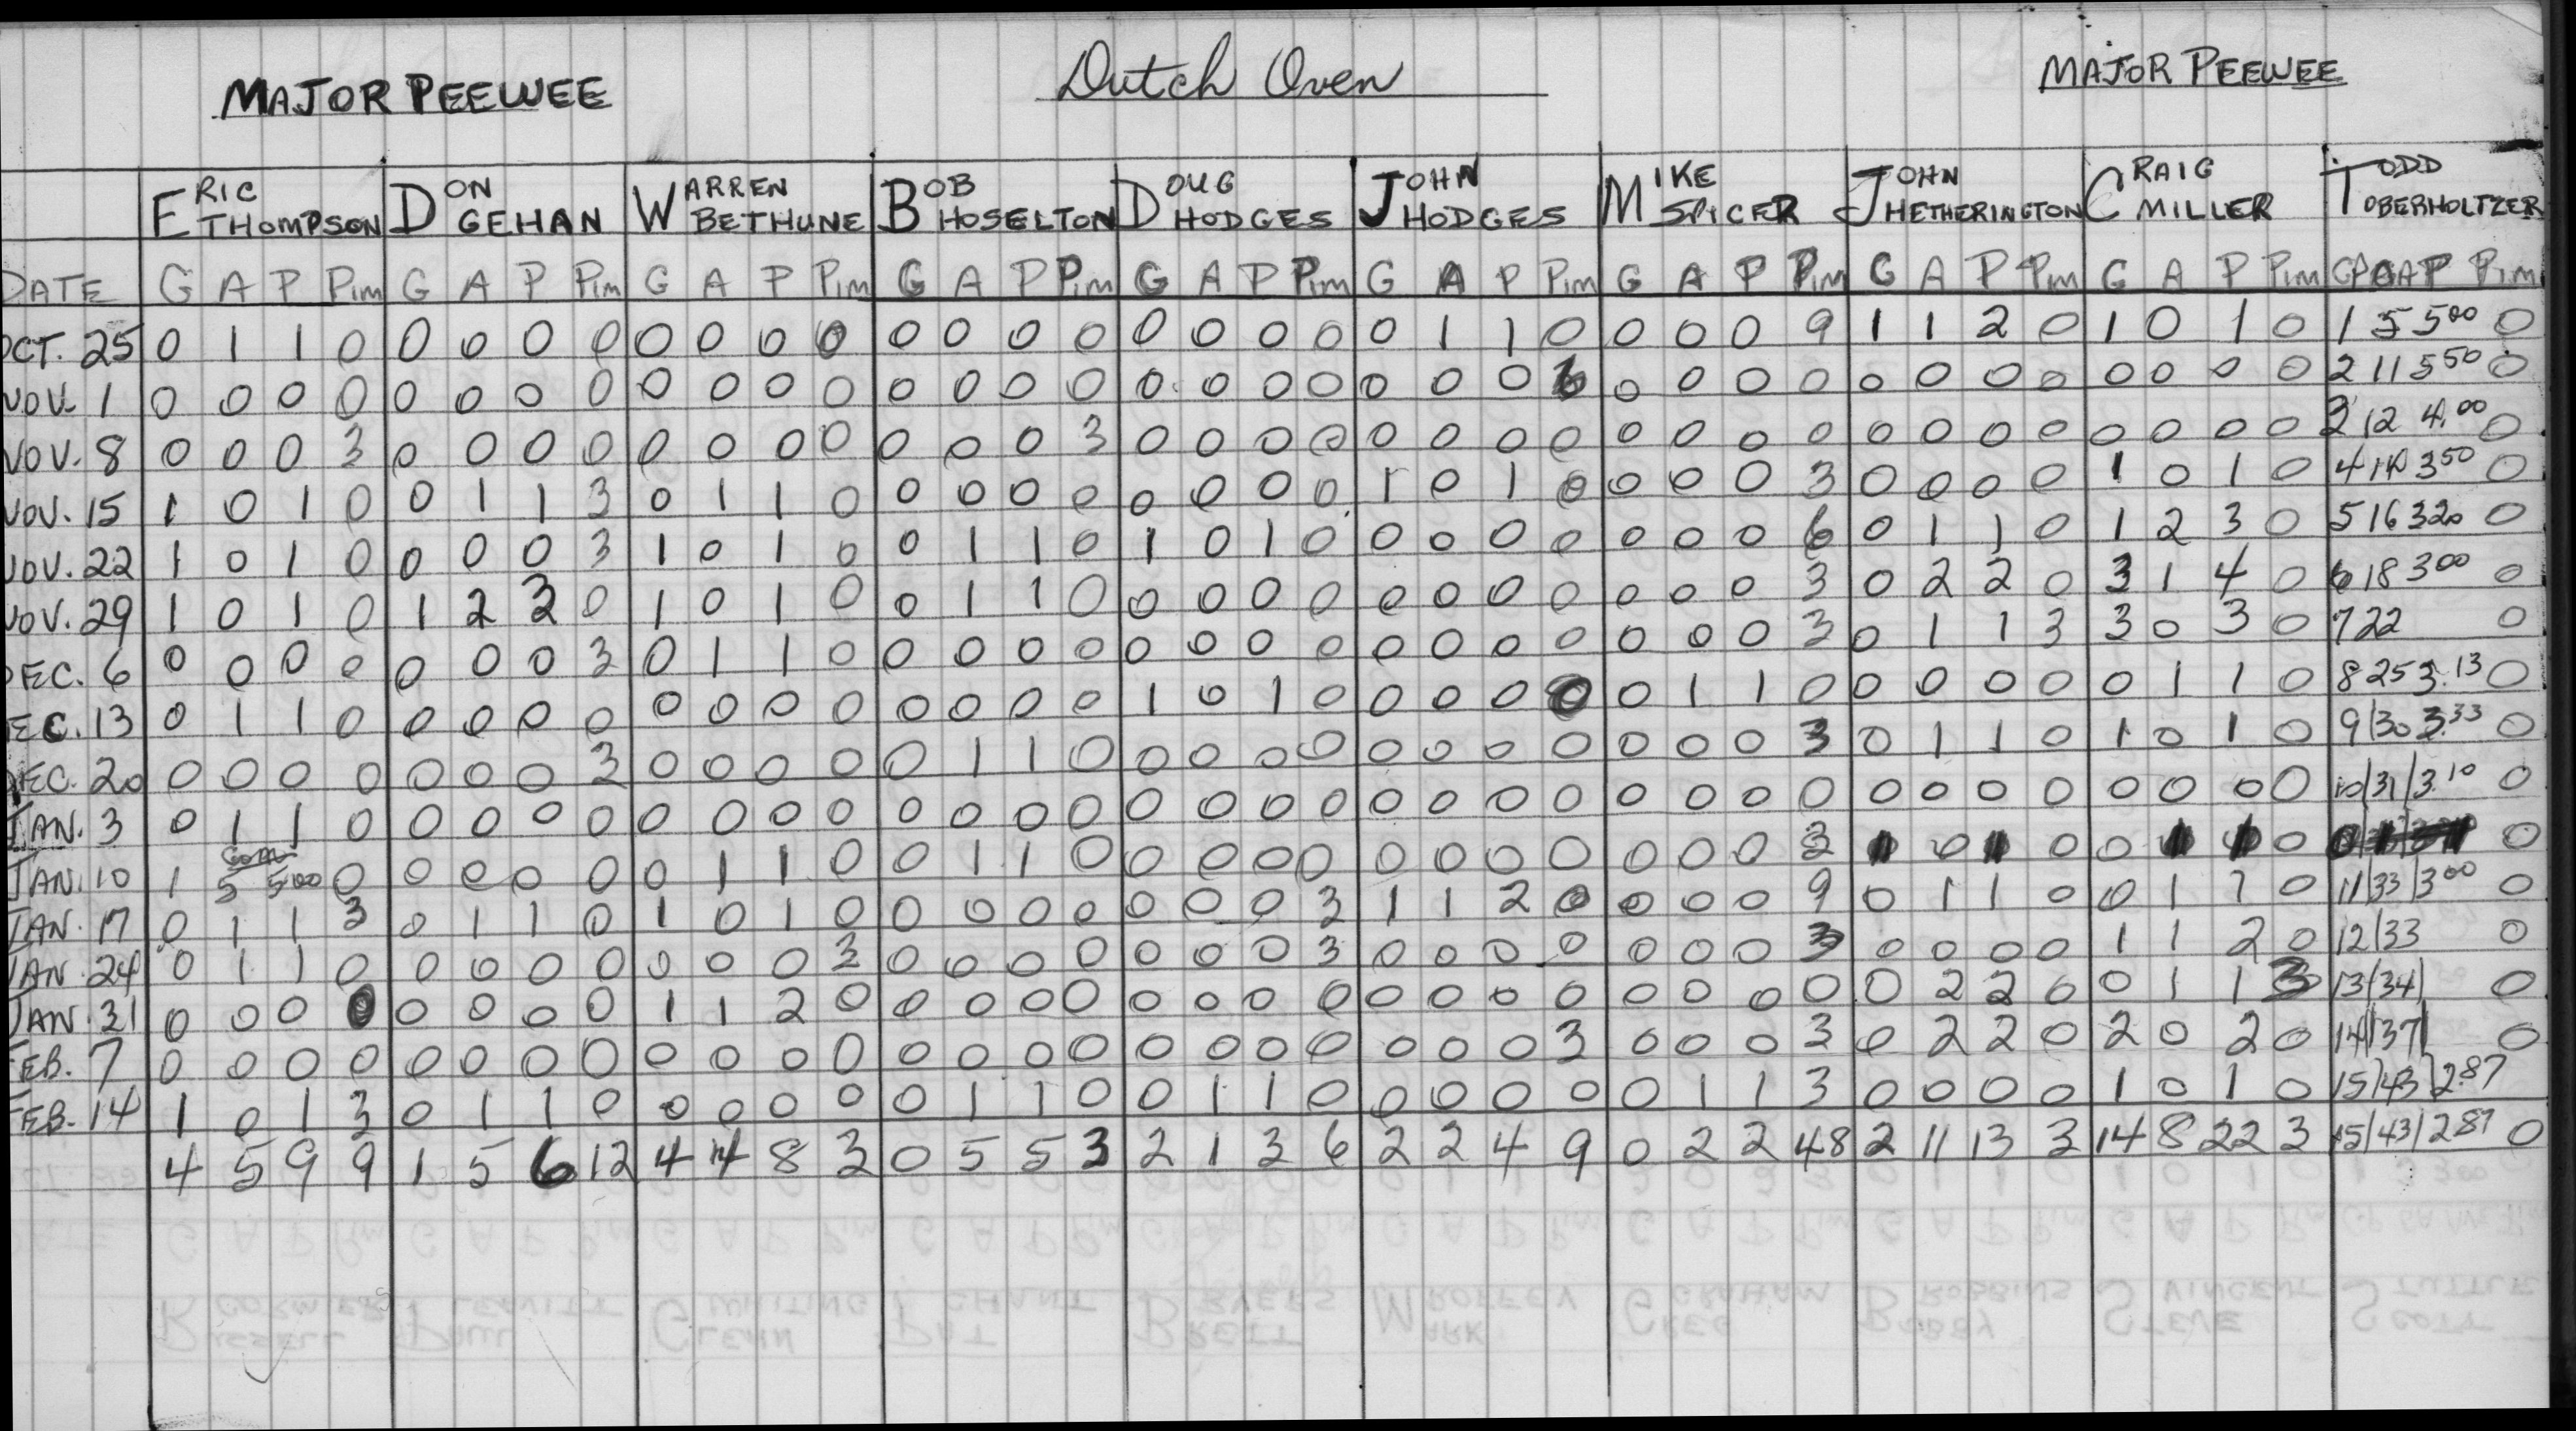 MAJOR PEEWEE Dutch Oven MAJOR PEEWEE
ERIC THOMPSON DON GEHAN WARREN BETHUNE BOB HOSELTON DOUG HODGES JOHN HODGES MIKE SPICER JOHN HETHERINGTON CRAIG MILLER TODD OBERHOLTZER
DATE G A P Pim G A P Pim G A P Pim G A P Pim G A P Pim G A P Pim G A P Pim G A P Pim G A P Pim Pim
OCT. 25 0 1 1 0 0 0 0 0 0 0 0 0 0 0 0 0 0 0 0 0 0 1 1 0 0 0 0 9 1 1 2 0 1 0 1 0 1 5 5.00 0
NOV. 1 0 0 0 0 0 0 0 0 0 0 0 0 0 0 0 0 0 0 0 0 0 0 0 6 0 0 0 0 0 0 0 0 0 0 0 0 2 11 5.50 0
NOV. 8 0 0 0 3 0 0 0 0 0 0 0 0 0 0 0 3 0 0 0 0 0 0 0 0 0 0 0 0 0 0 0 0 0 0 0 0 3 12 4.00 0
NOV. 15 1 0 1 0 0 1 1 3 0 1 1 0 0 0 0 0 0 0 0 0 1 0 1 0 0 0 0 3 0 0 0 0 1 0 1 0 4 14 3.50 0
NOV. 22 1 0 1 0 0 0 0 3 1 0 1 0 0 1 1 0 1 0 1 0 0 0 0 0 0 0 0 6 0 1 1 0 1 2 3 0 5 16 3.20 0
NOV. 29 1 0 1 0 1 2 3 0 1 0 1 0 0 1 1 0 0 0 0 0 0 0 0 0 0 0 0 3 0 2 2 0 3 1 4 0 6 18 3.00 0
DEC. 6 0 0 0 0 0 0 0 3 0 1 1 0 0 0 0 0 0 0 0 0 0 0 0 0 0 0 0 3 0 1 1 3 3 0 3 0 7 22 0
DEC. 13 0 1 1 0 0 0 0 0 0 0 0 0 0 0 0 0 1 0 1 0 0 0 0 0 0 1 1 0 0 0 0 0 0 1 1 0 8 25 3.13 0
DEC. 20 0 0 0 0 0 0 0 3 0 0 0 0 0 1 1 0 0 0 0 0 0 0 0 0 0 0 0 3 0 1 1 0 1 0 1 0 9/30 3.33 0
JAN. 3 0 1 1 0 0 0 0 0 0 0 0 0 0 0 0 0 0 0 0 0 0 0 0 0 0 0 0 0 0 0 0 0 0 0 0 0 10/31/3.10 0
JAN. 10 1 Com 5 5.00 0 0 0 0 0 0 1 1 0 0 1 1 0 0 0 0 0 0 0 0 0 0 0 0 3 0 0 0 0 0
JAN. 17 0 1 1 3 0 1 1 0 1 0 1 0 0 0 0 0 0 0 0 3 1 1 2 0 0 0 0 9 0 1 1 0 0 1 1 0 11/33/3.00 0
JAN. 24 0 1 1 0 0 0 0 0 0 0 0 3 0 0 0 0 0 0 0 3 0 0 0 0 0 0 0 3 0 0 0 0 1 1 2 0 12/33 0
JAN. 31 0 0 0 0 0 0 0 0 1 1 2 0 0 0 0 0 0 0 0 0 0 0 0 0 0 0 0 0 0 2 2 0 0 1 1 3 13/34/ 0
FEB. 7 0 0 0 0 0 0 0 0 0 0 0 0 0 0 0 0 0 0 0 0 0 0 0 3 0 0 0 3 0 2 2 0 2 0 2 0 14/37/ 0
FEB. 14 1 0 1 3 0 1 1 0 0 0 0 0 0 1 1 0 0 1 1 0 0 0 0 0 0 1 1 3 0 0 0 0 1 0 1 0 15/43/2.87
4 5 9 9 1 5 6 12 4 4 8 3 0 5 5 3 2 1 3 6 2 2 4 9 0 2 2 48 2 11 13 3 14 8 22 3 15/43/2.87 0